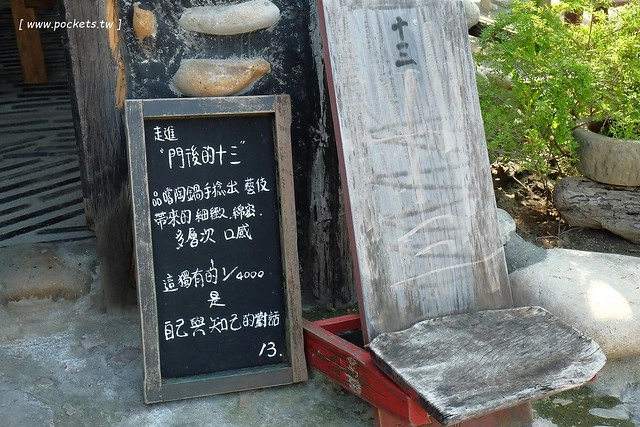 [ www.pockets.tw ]
十三
走進
"門後的十三"
品嚐陶鍋手捻出 藝伎
帶來的 細緻、綿密、
多層次 口感
這獨有的 1/4000
是
自己與知己的對話
13.